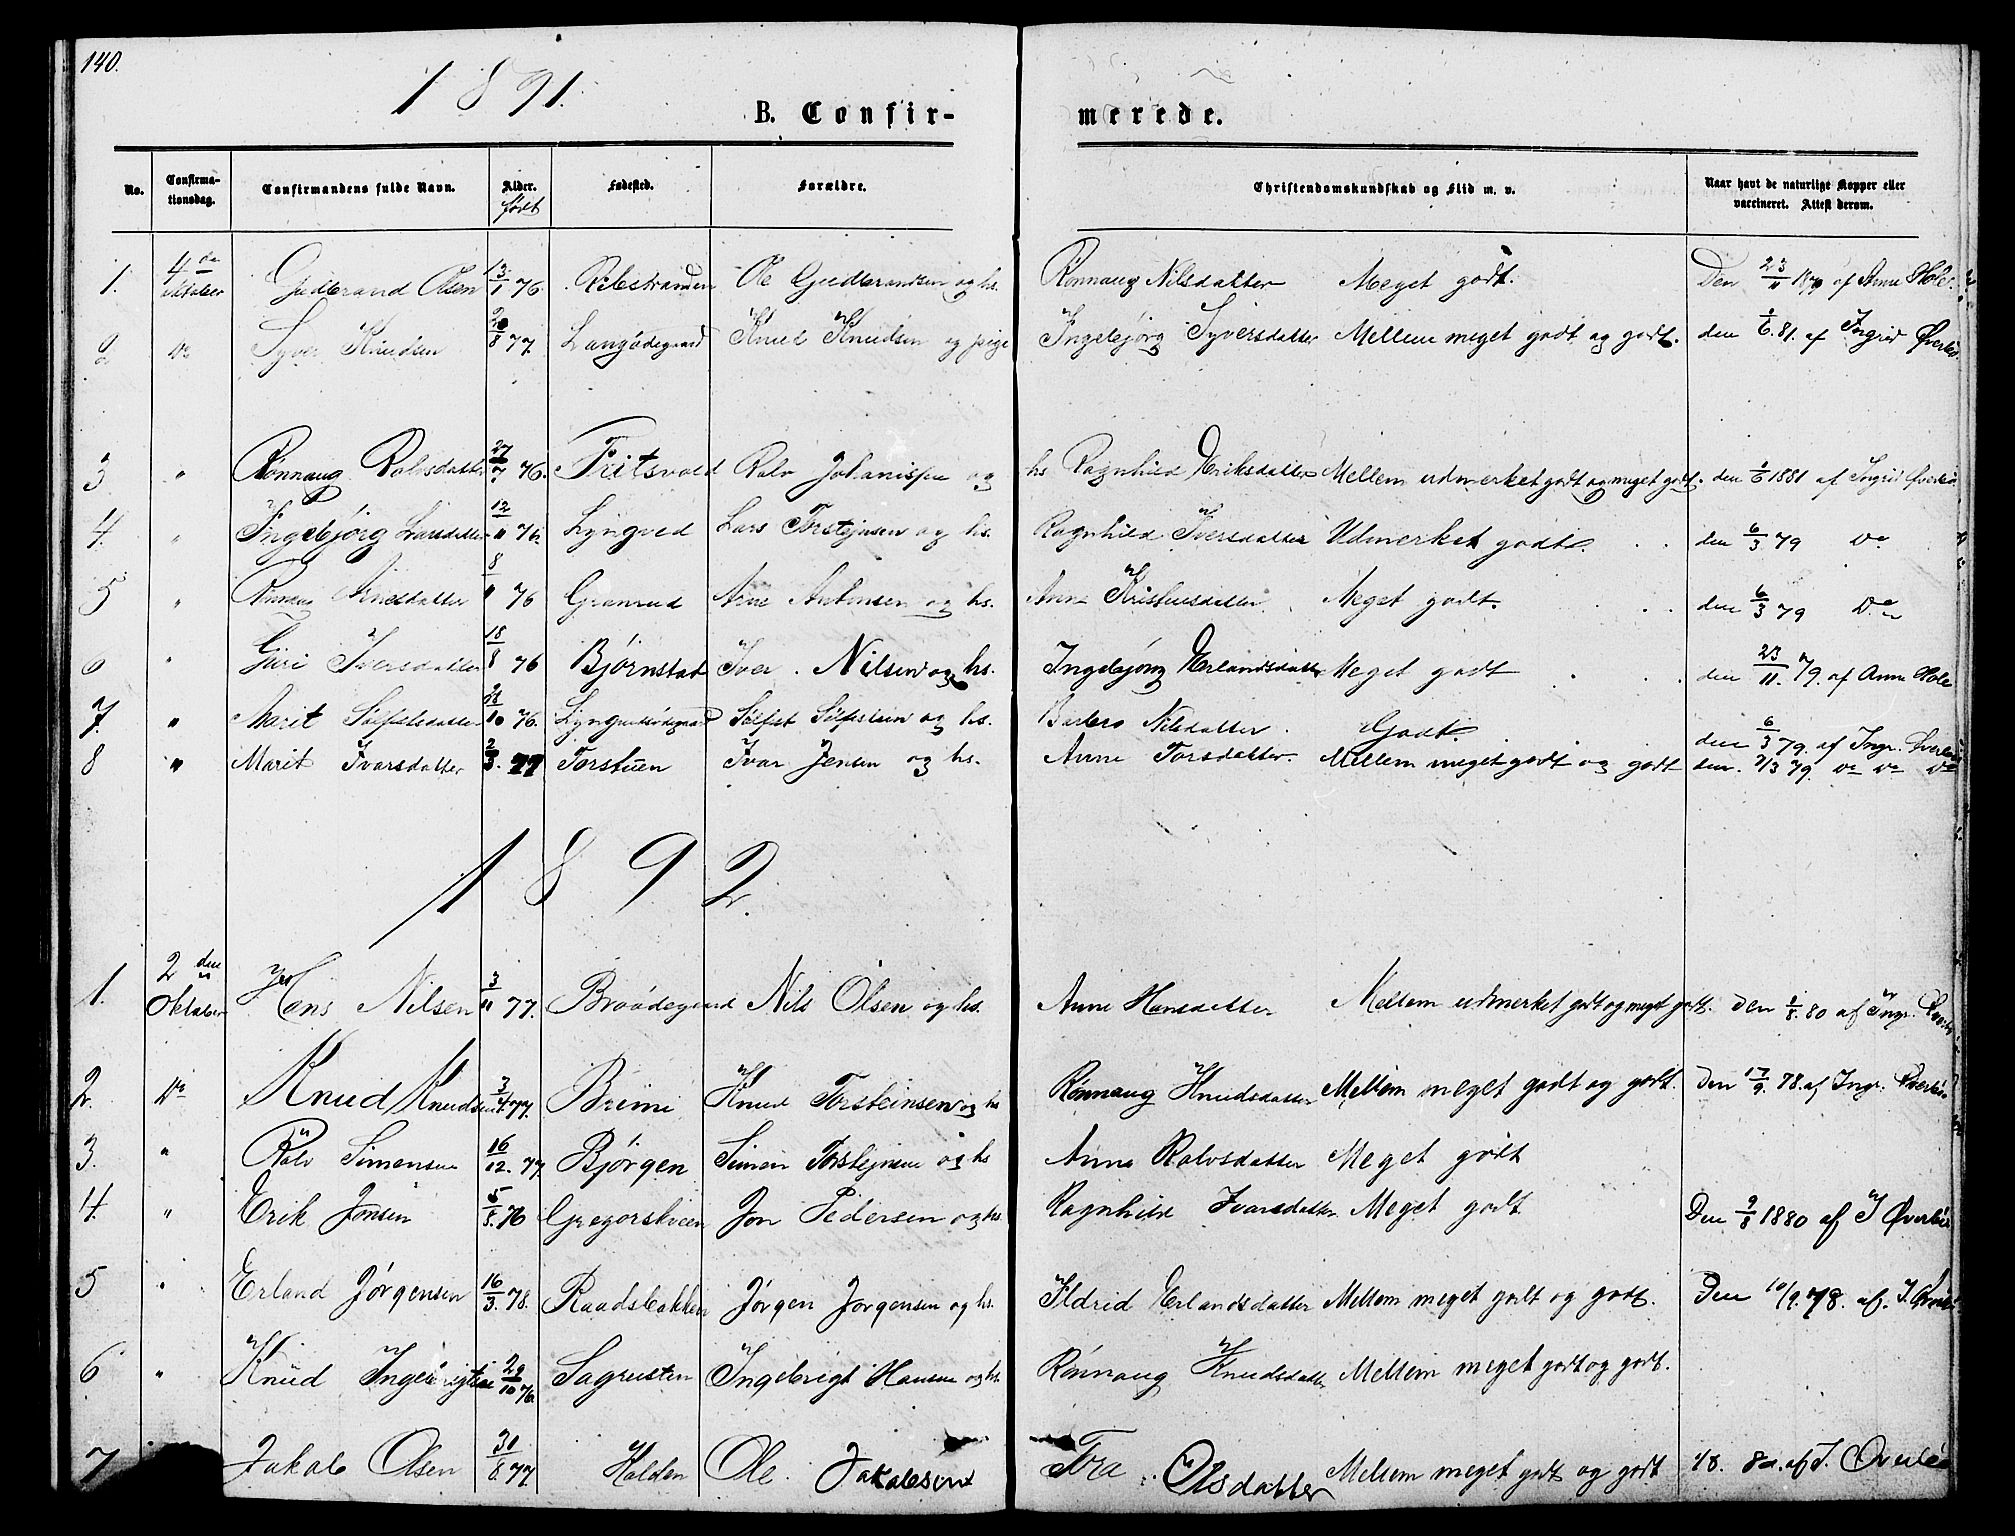 140.
1891.
B. Confir-
merede.
No.
Confirma-
tionsdag.
Confirmandens fulde Navn.
Alder.
født
Fødested.
Forældre.
Christendomskundskab og Flid m. v.
Naar havt de naturlige Kopper eller
vaccineret. Attest derom.
1. 4de oktober Gudbrand Olsen 13/1 76. Ole Gudbrandsen og hs. Rønnaug Nilsdatter Meget godt. Den 23/11 af Anne Hole
2 Do Syver Knudsen 77 Langødegaard Knud Knudsen og pige Ingebjørg Syversdatter Mellem meget godt og godt. den 1/6. 81. af Ingrid Øverlie
3 " Rønnaug Rolvsdatter 27/7 76. Fritsvold Rolv og hs Ragnhild Eriksdatter Mellem udmerket godt og meget godt. den 1/6 1881 af Ingrid Øverlie
4. " Ingebjørg Larsdatter 12/11 76. Lyngved Lars Torstejnsen og hs. Ragnhild Iversdatter Udmerket godt. den 6/3 79 Do
5 " Rønnaug Arnesdatter 8/11 76 Granrud Arne Antonsen og hs. Anne Meget godt. den 6/3 79 Do
6 " Guri Iversdatter 18/8 76 Bjørnstad Iver Nilsen og hs. Ingebjørg Erlandsdatter Meget godt den 23/11. 79. af Anne Hole
7. " Marit 76. og hs. Barbro Nilsdatter. Godt. den 6/3 79. af Ingr. Øverlie
8 " Marit Ivarsdatter 2/3. 77 Torstuen Ivar Jensen og hs. Anne Torsdatter. Mellem meget godt og godt den. 79. Do Do Do
1892.
1. 2den Oktober Hans Nilsen 3/11 77. Braaødegaard Nils Olsen og hs. Anne Hansdatter Mellem udmerket godt og meget godt. Den 1/8. 80 af Ingr.
2. Do Knud Knudsen 77. Brimi Knud Torsteinsen og hs Rønnaug Knudsdatter Mellem meget godt og godt. Den 17/9. 78. af Ingr. Øverlie
3. " Rolv Simensen 16/12. 77. Bjørgen Simen Torstejnsen og hs Anne Rolvsdatter Meget godt
4. " Erik Jonsen 76 Gregorskveen Jon Pedersen og hs. Ragnhild Ivarsdatter Meget godt Den 9/8 1880 af I Øverlie
5 " Erland Jørgensen 16/3. 78. Raadsbakken Jørgen Jørgensen og hs. Ildrid Erlandsdatter Mellem meget godt og godt. Den 10/9. 78. af. I. Øverlie
6 " Knud Ingebrigtsen 29/10 76. Sagrusten Ingebrigt Hansen og hs. Rønnaug Knudsdatter Mellem meget godt og godt.
7 Jakob Olsen 77 Holden Ole Jakobsen Tora Olsdatter Mellem meget godt og godt 80. af I. Øverlie